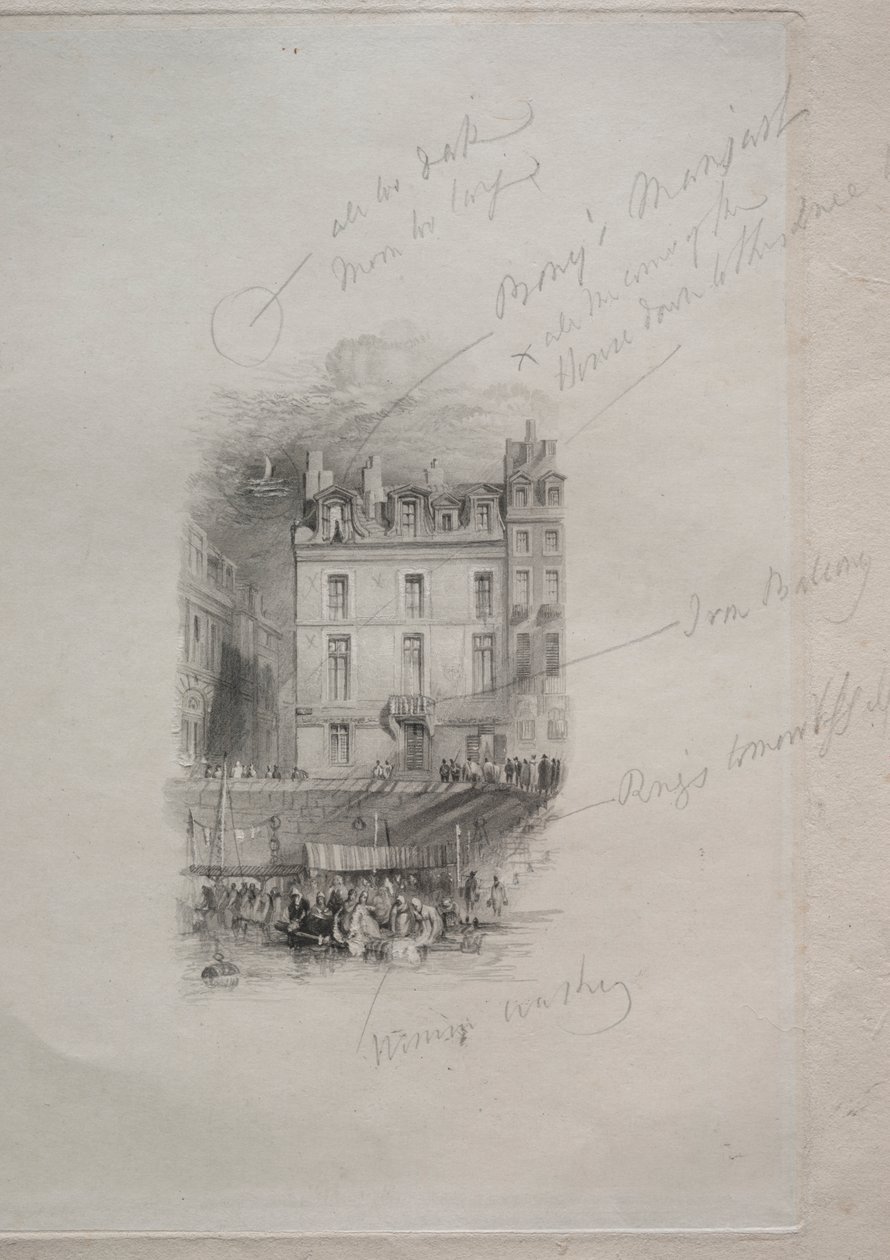 all too dark
Moon too large
Bony's
x all the corner of the
House down to this
Iron Balcony
Rings to
Women washing